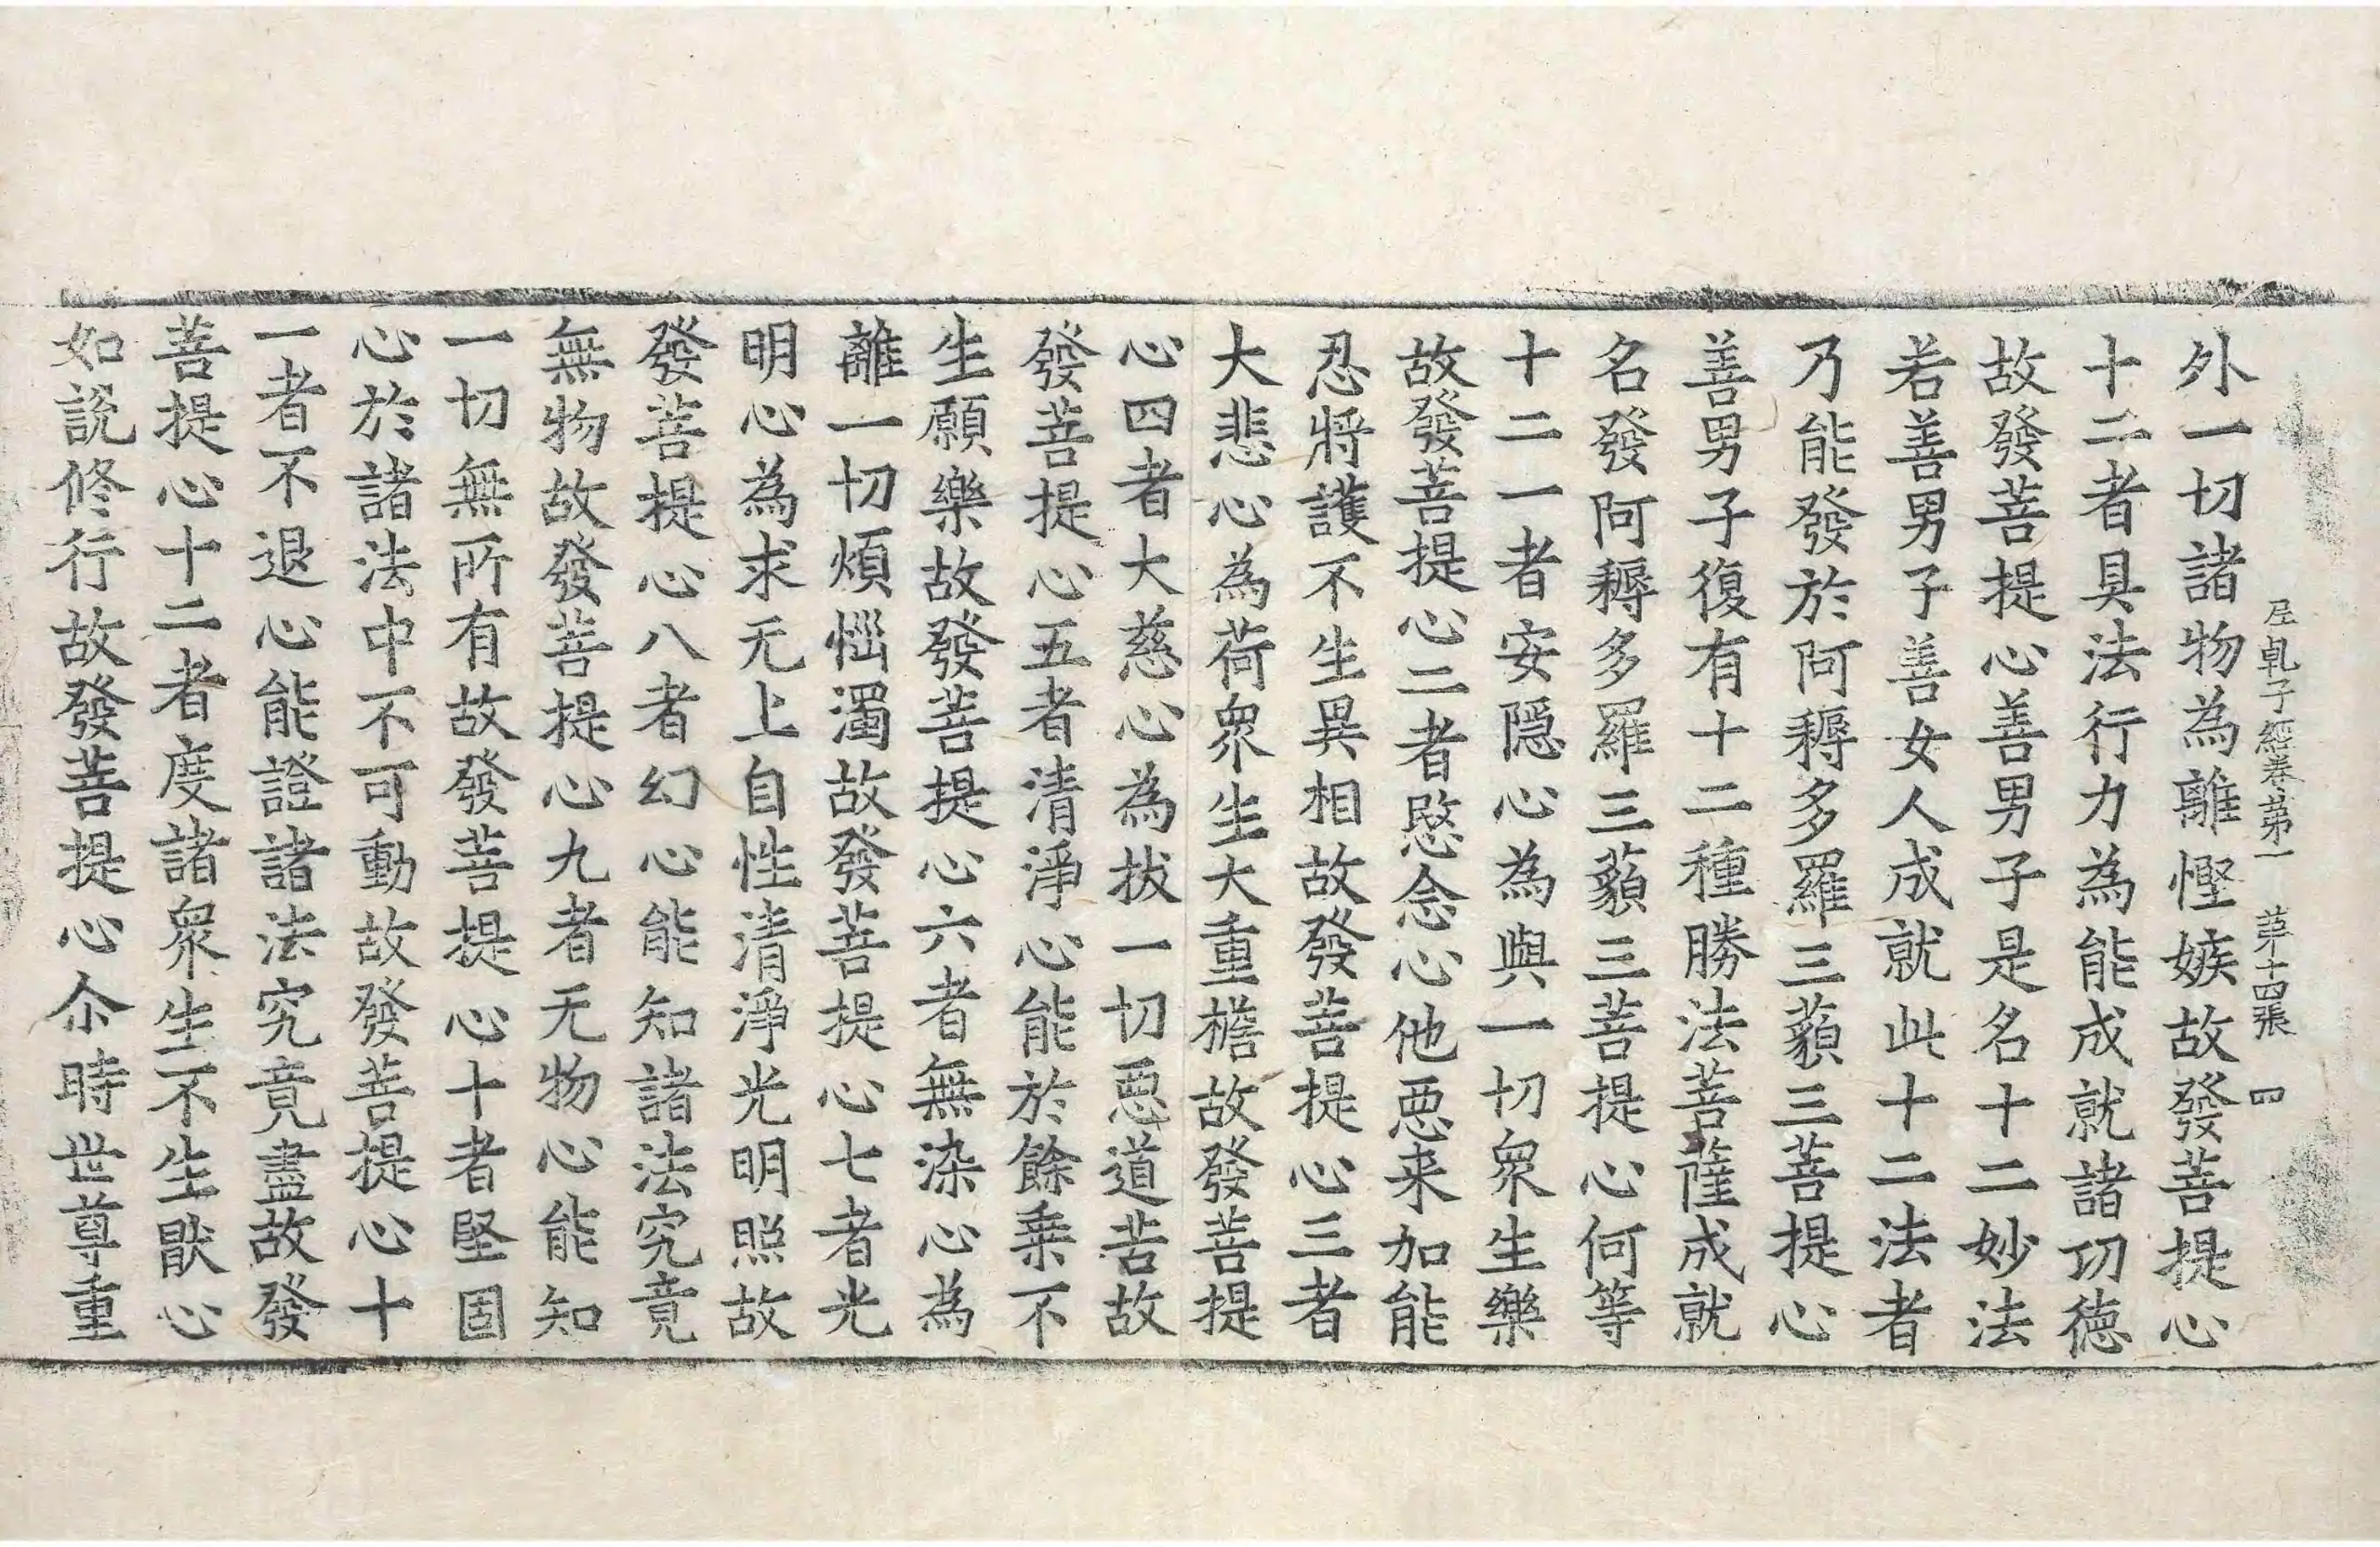 尼乹子經卷第一　第十四張　四
外一切諸物為離慳嫉故發菩提心
十二者具法行力為能成就諸功德
故發菩提心善男子是名十二妙法
若善男子善女人成就此十二法者
乃能發於阿耨多羅三藐三菩提心
善男子復有十二種勝法菩薩成就
名發阿耨多羅三藐三菩提心何等
十二一者安隱心為與一切衆生樂
故發菩提心二者愍念心他惡来加能
忍將護不生異相故發菩提心三者
大悲心為荷衆生大重擔故發菩提
心四者大慈心為拔一切惡道苦故
發菩提心五者清淨心能於餘乗不
生願樂故發菩提心六者無染心為
離一切煩惱濁故發菩提心七者光
明心為求无上自性清淨光明照故
發菩提心八者幻心能知諸法究竟
無物故發菩提心九者无物心能知
一切無所有故發菩提心十者堅固
心於諸法中不可動故發菩提心十
一者不退心能證諸法究竟盡故發
菩提心十二者度諸衆生不生猒心
如說修行故發菩提心尒時世尊重